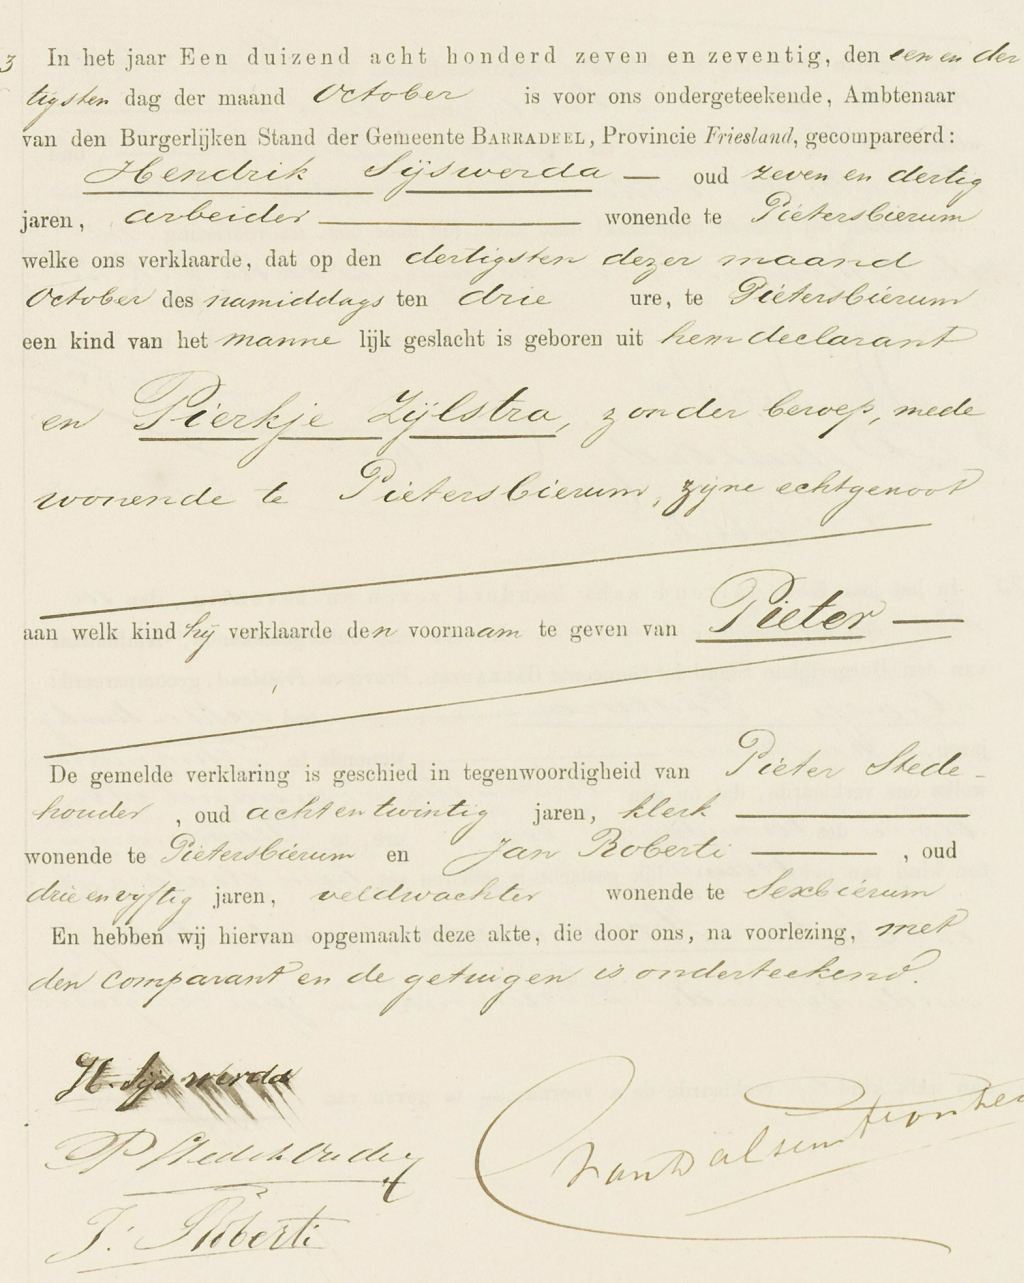 3 In het jaar Een duizend acht honderd zeven en zeventig, den een en der
tigsten dag der maand October is voor ons ondergeteekende, Ambtenaar
van den Burgerlijken Stand der Gemeente BARRADEEL, Provincie Friesland, gecompareerd:
Hendrik Sijswerda — oud zeven en dertig
jaren, arbeider wonende te Pietersbierum
welke ons verklaarde, dat op den dertigsten dezer maand
October des namiddags ten drie ure, te Pietersbierum
een kind van het manne lijk geslacht is geboren uit hem declarant
en Pierkje Zijlstra, zonder beroep, mede
wonende te Pietersbierum, zijne echtgenoot
aan welk kind hij verklaarde den voornaam te geven van Pieter —
De gemelde verklaring is geschied in tegenwoordigheid van Pieter Stede-
houder, oud acht en twintig jaren, klerk
wonende te Pietersbierum en Jan Roberti , oud
drie en vijftig jaren, veldwachter wonende te Sexbierum
En hebben wij hiervan opgemaakt deze akte, die door ons, na voorlezing, met
den comparant en de getuigen is onderteekend.
H. Sijswerda
P Stedehouder
J. Roberti